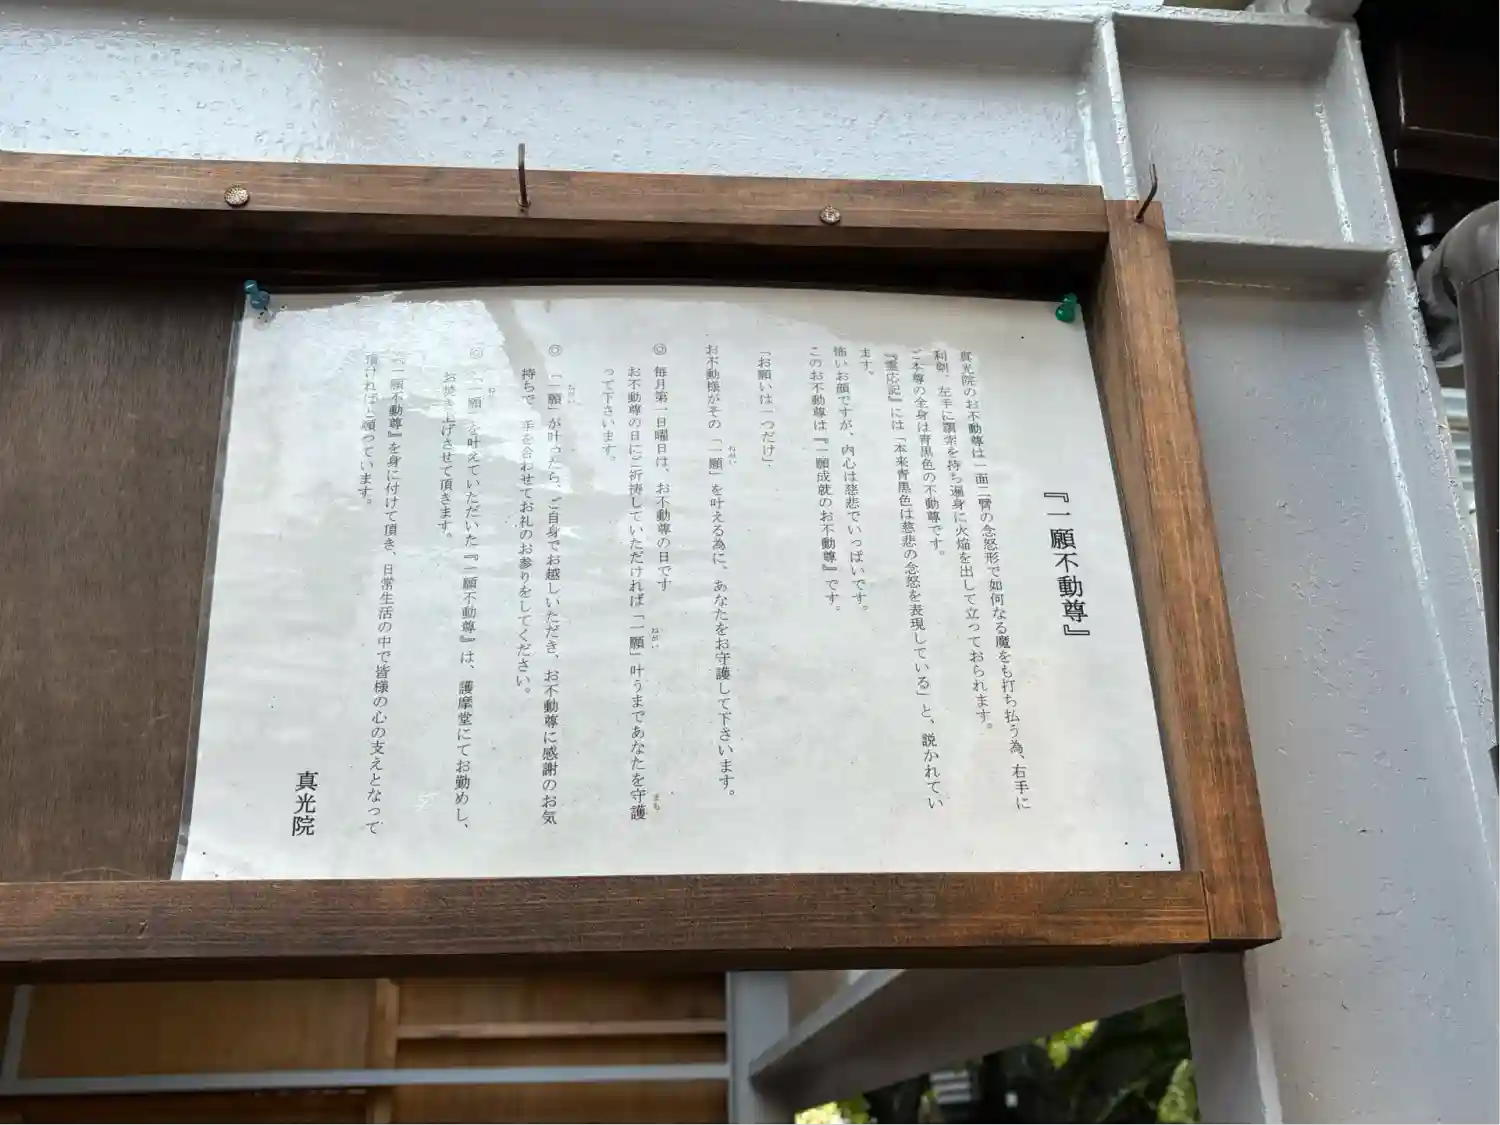 『一願不動尊』
真光院のお不動尊は一面二臂の念怒形で如何なる魔をも打ち払う為、右手に
利剣、左手に羂索を持ち遍身に火焔を出して立っておられます。
ご本尊の全身は青黒色の不動尊です。
『霊応記』には「本来青黒色は慈悲の念怒を表現している」と、説かれてい
ます。
怖いお顔ですが、内心は慈悲でいっぱいです。
このお不動尊は『一願成就のお不動尊』です。
「お願いは一つだけ」
お不動様がその「一願」を叶える為に、あなたをお守護して下さいます。
◎ 毎月第一日曜日は、お不動尊の日です
お不動尊の日にご祈祷していただければ「一願」叶うまであなたを守護
って下さいます。
◎ 「一願」が叶ったら、ご自身でお越しいただき、お不動尊に感謝のお気
持ちで、手を合わせてお礼のお参りをしてください。
◎ 「一願」を叶えていただいた『一願不動尊』は、護摩堂にてお勤めし、
お焚き上げさせて頂きます。
『一願不動尊』を身に付けて頂き、日常生活の中で皆様の心の支えとなって
頂ければと願っています。
真光院